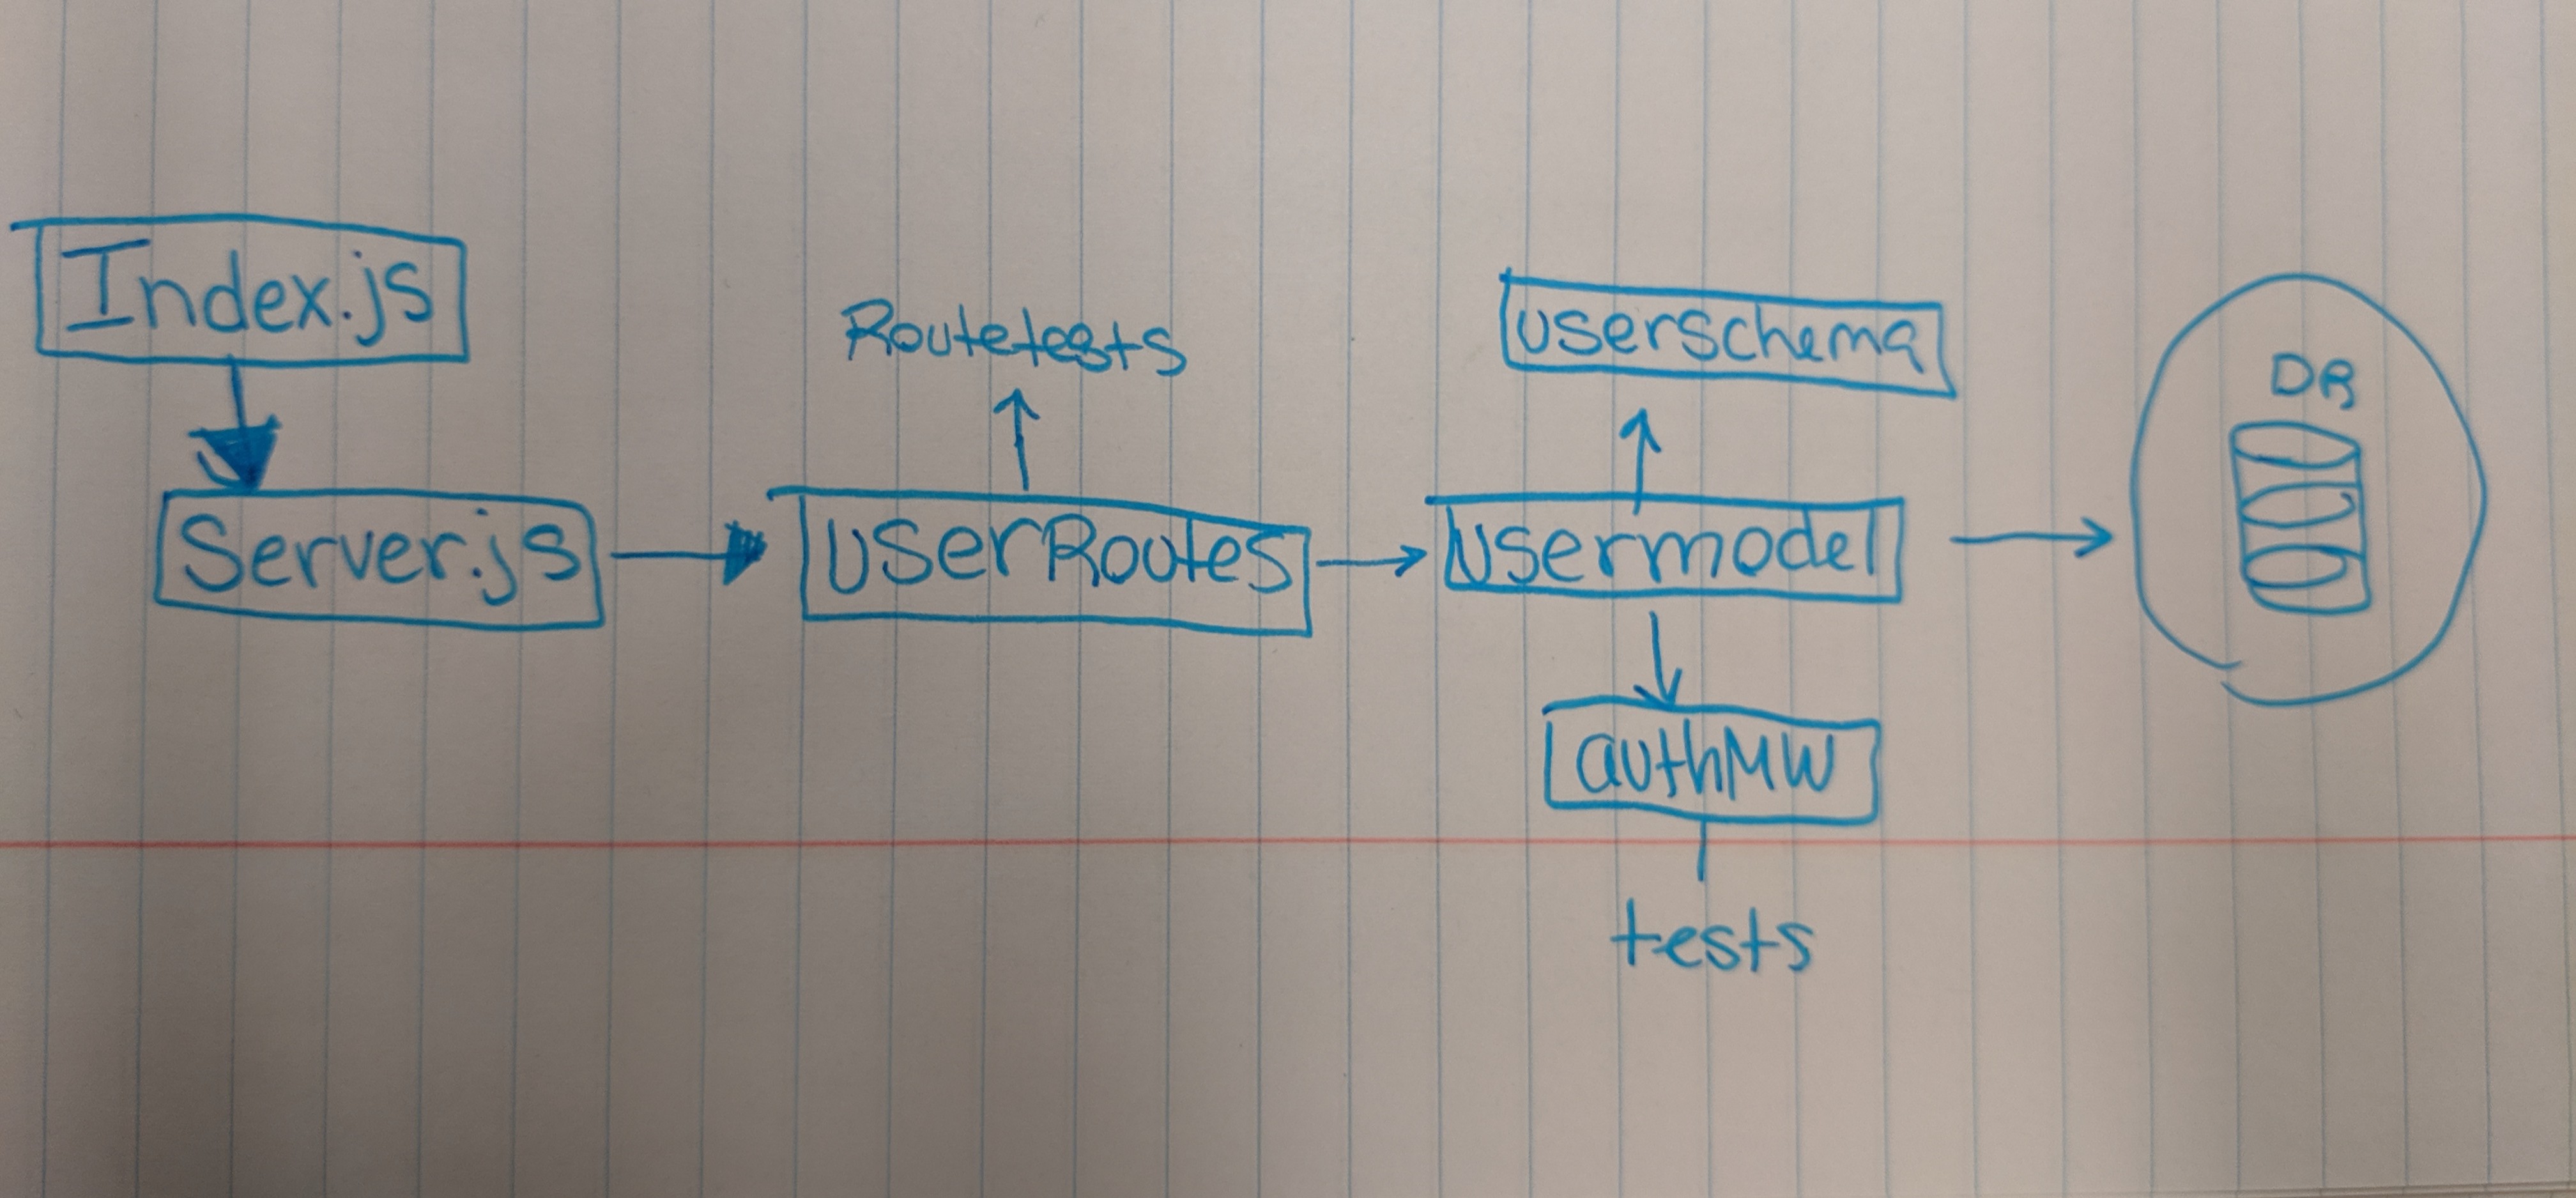 Index.js
Server.js
Routetests
UserRoutes
userschema
usermodel
authMW
tests
DB